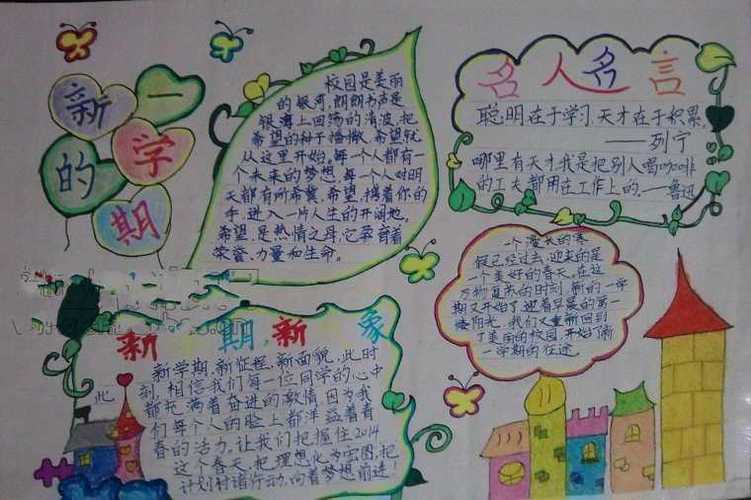 新 一
学
的
期
校园是美丽
的银河,朗朗书声是
银海上回荡的清波,把
希望的种子播撒,希望就
从这里开始。每一个人都有一
个未来的梦想,每一个人对明
天都有所希冀,希望,携着你的
手,进入一片人生的开阔地。
希望,是热情之母,它孕育着
荣誉、力量和生命。
名人名言
聪明在于学习,天才在于积累。
——列宁
哪里有天才,我是把别人喝咖啡
的工夫都用在工作上的。—鲁迅
一个漫长的寒
假已经过去,迎来的是
一个美好的春天,在这
万物复苏的时刻,新的一学
期又开始了,迎着早晨的第一
缕阳光,我们又重新回到
了美丽的校园,开始了新
一学期的征途.
新 期,新 象
新学期,新征程,新面貌,此时
此刻,相信我们每一位同学的心中
都充满着奋进的激情,因为我
们每个人的脸上都洋溢着青
春的活力。让我们把握住2014
这个春天,把理想化为宏图,把
计划付诸行动,向着梦想前进!